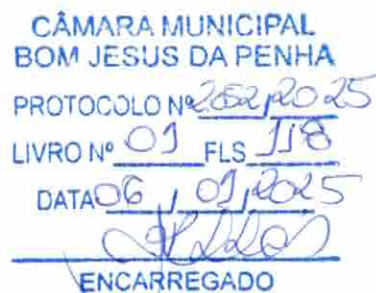 CÂMARA MUNICIPAL
BOM JESUS DA PENHA
PROTOCOLO Nº 262/2025
LIVRO Nº 01 FLS 118
DATA 06 / 01/2025
ENCARREGADO